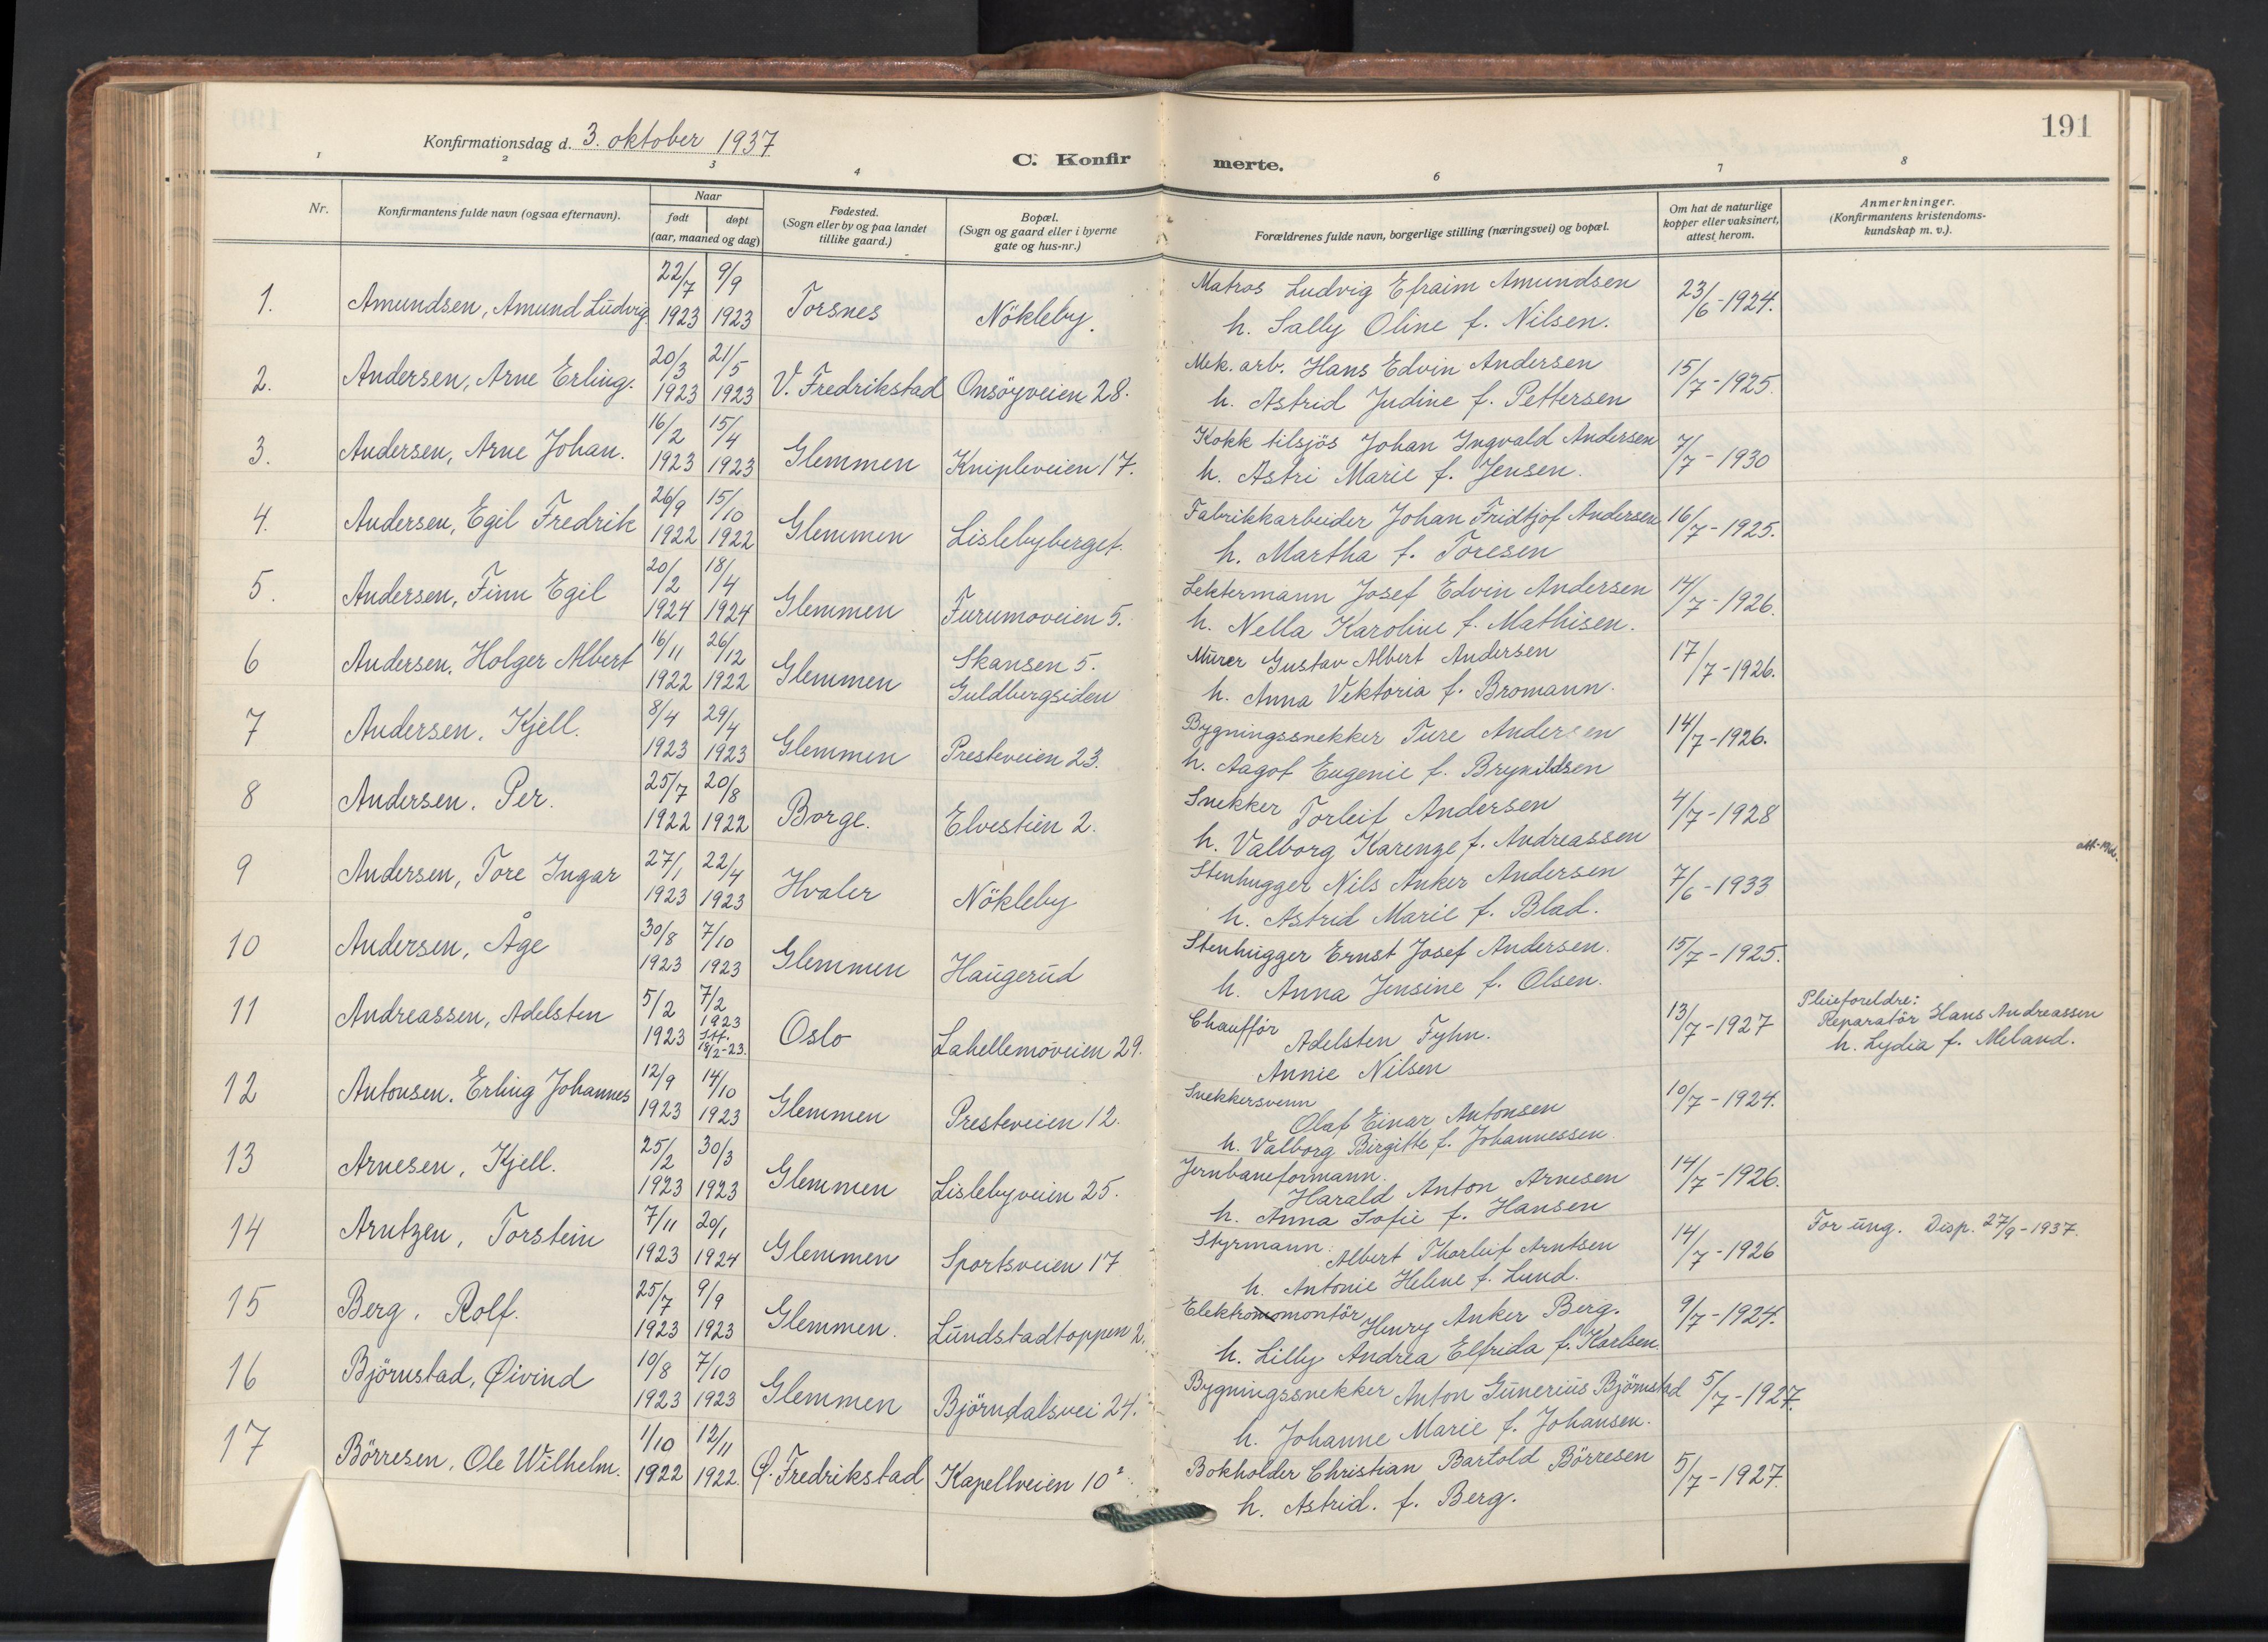 191
Konfirmationsdag d. 3. oktober 1937
C. Konfir merte.
1 2 3 4 6 7 8
Nr.
Konfirmantens fulde navn (ogsaa efternavn).
Naar
født døpt
(aar, maaned og dag)
Fødested.
(Sogn eller by og paa landet
tillike gaard.)
Bopæl.
(Sogn og gaard eller i byerne
gate og hus-nr.)
Forældrenes fulde navn, borgerlige stilling (næringsvei) og bopæl.
Om hat de naturlige
kopper eller vaksinert,
attest herom.
Anmerkninger.
(Konfirmantens kristendoms-
kundskap m. v.).
1. Amundsen, Amund Ludvig 22/7 1923 9/9 1923 Torsnes Nökleby.
Matros Ludvig Efraim Amundsen
h. Sally Oline f. Nilsen.
23/6-1924.
2. Andersen, Arne Erling. 20/3 1923 21/5 1923 V. Fredrikstad Onsöyveien 28.
Mek. arb. Hans Edvin Andersen
h. Astrid Judine f. Pettersen
15/7-1925.
3. Andersen, Arne Johan. 16/2 1923 15/4 1923 Glemmen Knipleveien 17.
Kokk tilsjös Johan Ingvald Andersen
h. Astri Marie f. Jensen.
7/7-1930
4. Andersen, Egil Fredrik 26/9 1922 15/10 1922 Glemmen Lislebyberget.
Fabrikkarbeider Johan Fridtjof Andersen
h. Martha f. Toresen
16/7-1925.
5. Andersen, Finn Egil 20/2 1924 18/4 1924 Glemmen Furumoveien 5.
Lektermann Josef Edvin Andersen
h. Nella Karoline f. Mathisen.
14/7-1926.
6 Andersen, Holger Albert 16/11 1922 26/12 1922 Glemmen Skansen 5.
Guldbergsiden
Murer Gustav Albert Andersen
h. Anna Viktoria f. Bromann.
17/7-1926.
7 Andersen, Kjell. 8/4 1923 29/4 1923 Glemmen Presteveien 23.
Bygningssnekker Ture Andersen
h. Aagot Eugenie f. Brynildsen
14/7-1926.
8 Andersen, Per. 25/7 1922 20/8 1922 Borge. Elvestien 2.
Snekker Torleif Andersen
h. Valborg Karenze f. Andreassen
4/7-1928
9 Andersen, Tore Ingar 27/1 1923 22/4 1923 Hvaler Nökleby
Stenhugger Nils Anker Andersen
h. Astrid Marie f. Blad.
7/6-1933
10 Andersen, Åge 30/8 1923 7/10 1923 Glemmen Haugerud
Stenhugger Ernst Josef Andersen.
h. Anna Jensine f. Olsen.
15/7-1925.
11 Andreassen, Adelsten 5/2 1923 7/2 1923 Stf. 18/2-23. Oslo Lahellemoveien 29.
Chaufför Adelsten Fyhn.
Annie Nilsen
13/7-1927
Pleieforeldre:
Reparatör Hans Andreassen
h. Lydia f. Meland.
12 Antonsen, Erling Johannes 12/9 1923 14/10 1923 Glemmen Presteveien 12.
Snekkersvenn Olaf Einar Antonsen
h. Valborg Birgitte f. Johannessen
10/7-1924.
13 Arnesen, Kjell. 25/2 1923 30/3 1923 Glemmen Lislebyveien 25.
Jernbaneformann. Harald Anton Arnesen
h. Anna Sofie f. Hansen
14/7-1926.
14 Arntzen, Torstein 7/11 1923 20/1 1924 Glemmen Sportsveien 17
Styrmann. Albert Thorleif Arntsen
h. Antonie Helene f. Lund.
14/7-1926
For ung. Disp. 27/9-1937.
15 Berg, Rolf. 25/7 1923 9/9 1923 Glemmen. Lundstadtoppen 2.
Elektromontör Henry Anker Berg.
h. Lilly Andrea Elfrida f. Karlsen.
9/7-1924.
16 Björnstad, Øivind 10/8 1923 7/10 1923 Glemmen Björndalsvei 24.
Bygningssnekker Anton Gunerius Björnstad
h. Johanne Marie f. Johansen.
5/7-1927.
17 Börresen, Ole Wilhelm. 1/10 1922 12/11 1922. Ø. Fredrikstad Kapellveien 10²
Bokholder Christian Bartold Börresen
h. Astrid. f. Berg.
5/7-1927.